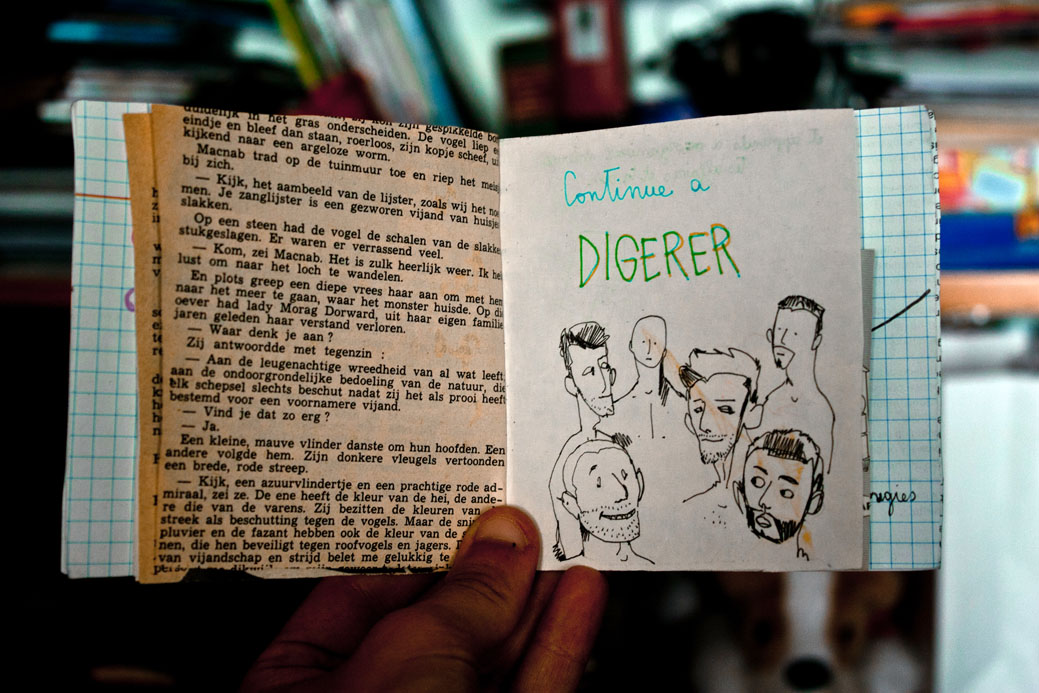 duidelijk in het gras onderscheiden. De vogel liep e
eindje en bleef dan staan, roerloos, zijn kopje scheef, u
kijkend naar een argeloze worm.
Macnab trad op de tuinmuur toe en riep het meis
bij zich.
— Kijk, het aambeeld van de lijster, zoals wij het no
men. Je zanglijster is een gezworen vijand van huisje
slakken.
Op een steen had de vogel de schalen van de slakke
stukgeslagen. Er waren er verrassend veel.
— Kom, zei Macnab. Het is zulk heerlijk weer. Ik he
lust om naar het loch te wandelen.
En plots greep een diepe vrees haar aan om met hem
naar het meer te gaan, waar het monster huisde. Op di
oever had lady Morag Dorward, uit haar eigen familie
jaren geleden haar verstand verloren.
— Waar denk je aan ?
Zij antwoordde met tegenzin :
— Aan de leugenachtige wreedheid van al wat leeft,
aan de ondoorgrondelijke bedoeling van de natuur, die
elk schepsel slechts beschut nadat zij het als prooi heeft
bestemd voor een voornamere vijand.
— Vind je dat zo erg ?
— Ja.
Een kleine, mauve vlinder danste om hun hoofden. Een
andere volgde hem. Zijn donkere vleugels vertoonden
een brede, rode streep.
— Kijk, een azuurvlindertje en een prachtige rode ad-
miraal, zei ze. De ene heeft de kleur van de hei, de ande-
re die van de varens. Zij bezitten de kleuren van
streek als beschutting tegen de vogels. Maar de sni
pluvier en de fazant hebben ook de kleur van de
nen, die hen beveiligt tegen roofvogels en jagers.
van vijandschap en strijd belet me gelukkig te
Continue a
DIGERER
negres